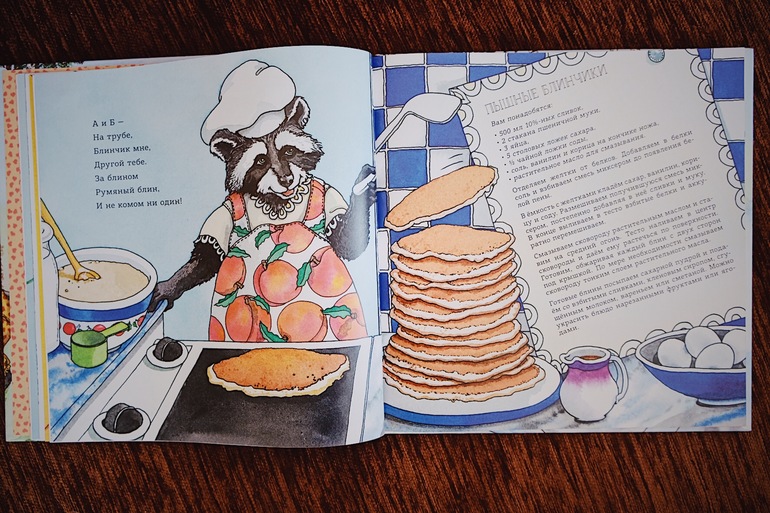 А и Б —
На трубе,
Блинчик мне,
Другой тебе.
За блином
Румяный блин,
И не комом ни один!
ПЫШНЫЕ БЛИНЧИКИ
Вам понадобятся:
• 500 мл 10%-ных сливок.
• 2 стакана пшеничной муки.
• 3 яйца.
• 5 столовых ложек сахара.
• ½ чайной ложки соды.
• соль, ванилин и корица на кончике ножа.
• растительное масло для смазывания.
Отделяем желтки от белков. Добавляем в белки
соль и взбиваем смесь миксером до появления бе-
лой пены.
В ёмкость с желтками кладём сахар, ванилин, кори-
цу и соду. Размешиваем получившуюся смесь мик-
сером, постепенно добавляя в неё сливки и муку.
В конце выливаем в тесто взбитые белки и акку-
ратно перемешиваем.
Смазываем сковороду растительным маслом и ста-
вим на средний огонь. Тесто наливаем в центр
сковороды и даём ему растечься по поверхности
Готовим, обжаривая каждый блин с двух сторон
под крышкой. По мере необходимости смазываем
сковороду тонким слоем растительного масла.
Готовые блины посыпаем сахарной пудрой и пода-
ём со взбитыми сливками, кленовым сиропом, сгу-
щённым молоком, вареньем или сметаной. Можно
украсить блюдо нарезанными фруктами или яго-
дами.